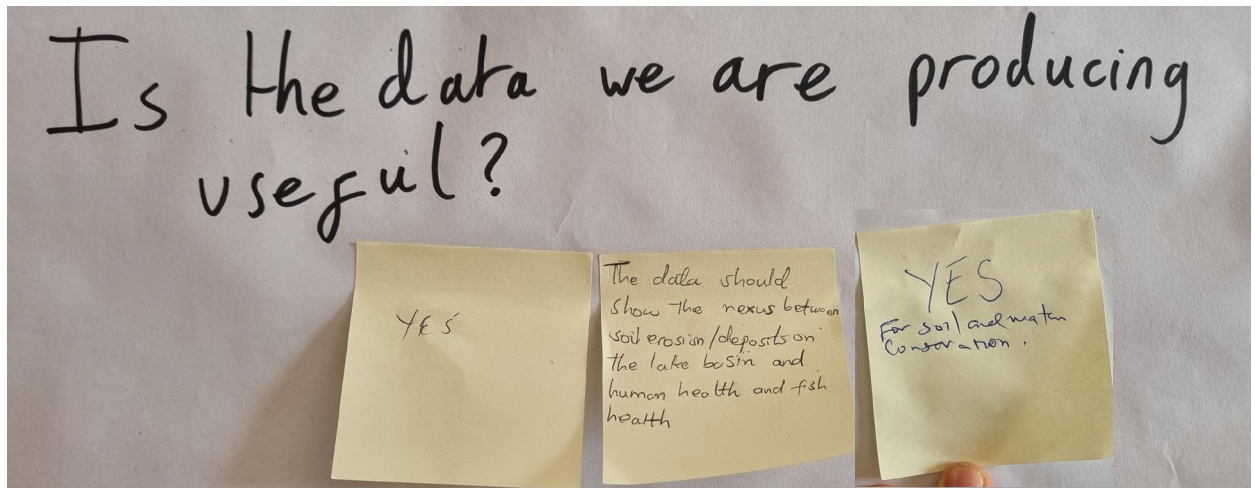 Is the data we are producing
useful?
YES
The data should
show the nexus between
soil erosion/deposits on
the lake basin and
human health and fish
health
YES
For soil and water
Conservation.